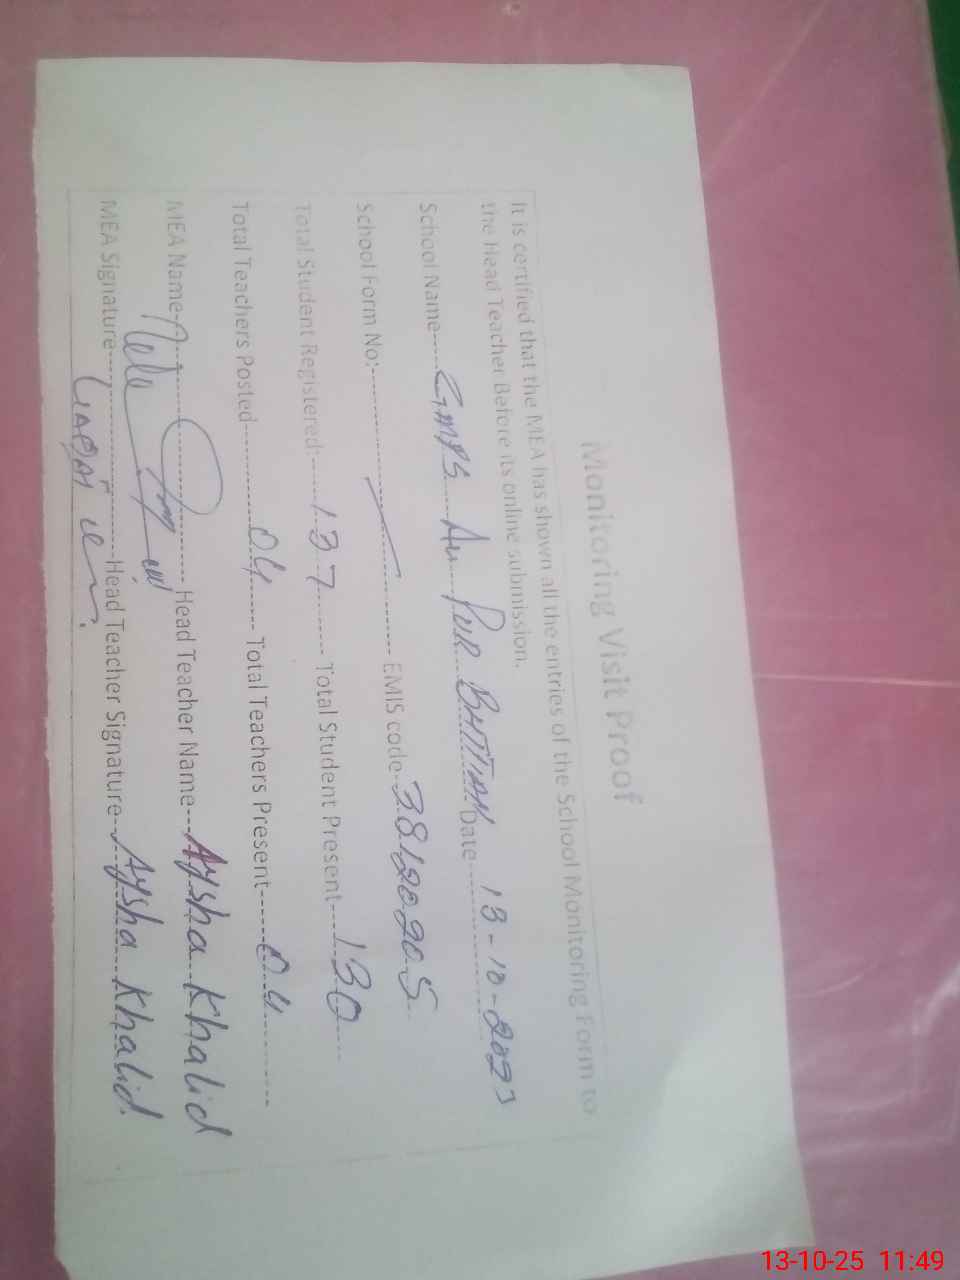 Monitoring Visit Proof
It is certified that the MEA has shown all the entries of the School Monitoring Form to
the Head Teacher Before its online submission.
School Name GMPS Ali Pur BHTTIAN Date 13-10-2025
School Form No: EMIS code 38120205
Total Student Registered: 137 Total Student Present 130
Total Teachers Posted 04 Total Teachers Present 04
MEA Name Head Teacher Name Aysha Khalid
MEA Signature Head Teacher Signature Aysha Khalid
13-10-25 11:49